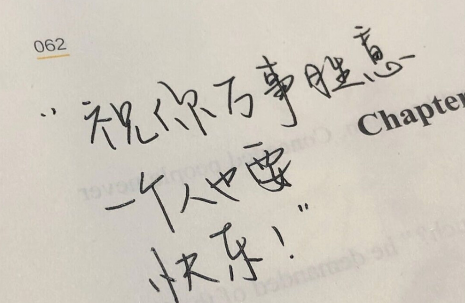 062
"祝你万事胜意
Chapter
一个人也要
快乐!"